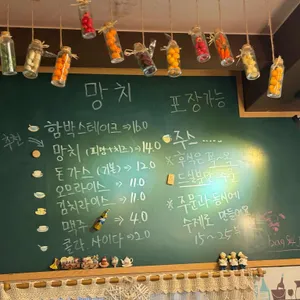 망치
포장가능
추천
함박스테이크 ⇒ 16.0
망치 (피감+치즈) ⇒ 14.0
돈가스 (기본) ⇒ 12.0
오므라이스 〃 11.0
김치라이스 〃 11.0
맥주 ⇒ 4.0
콜라.사이다 ⇒ 2.0
쥬스....
※ 주문과 동시에
수제로 만들어요
15~25분